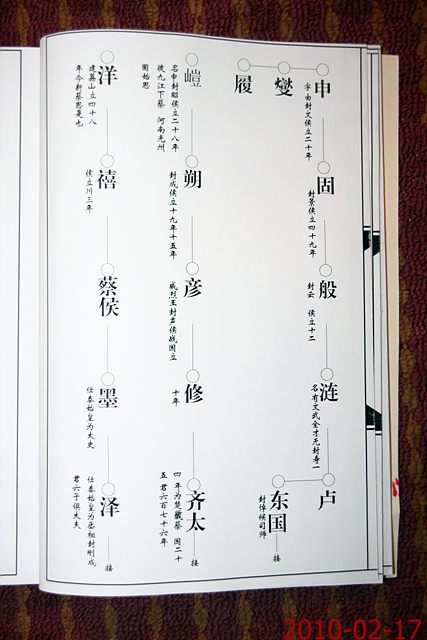 申
字由封文侯立二十年
燮
履
固
封景侯立四十九年
般
封云 侯立十二
涟
名有文武全才无封寿一
卢
东国
封悼候司师
接
名申封昭侯立二十八年
徙九江下蔡 河南光州
朔
封成侯立十九年十五年
彦
威烈王封声侯战国立
修
十年
齐太
四年为楚 蔡 国二十
五君六百七十六年
接
洋
建 山立四十八
年今新蔡思是也
禧
侯立川三年
蔡侯
墨
仕秦始皇为太史
泽
仕秦始皇为丞相封刚成
君六子俱大夫
接
2010-02-17